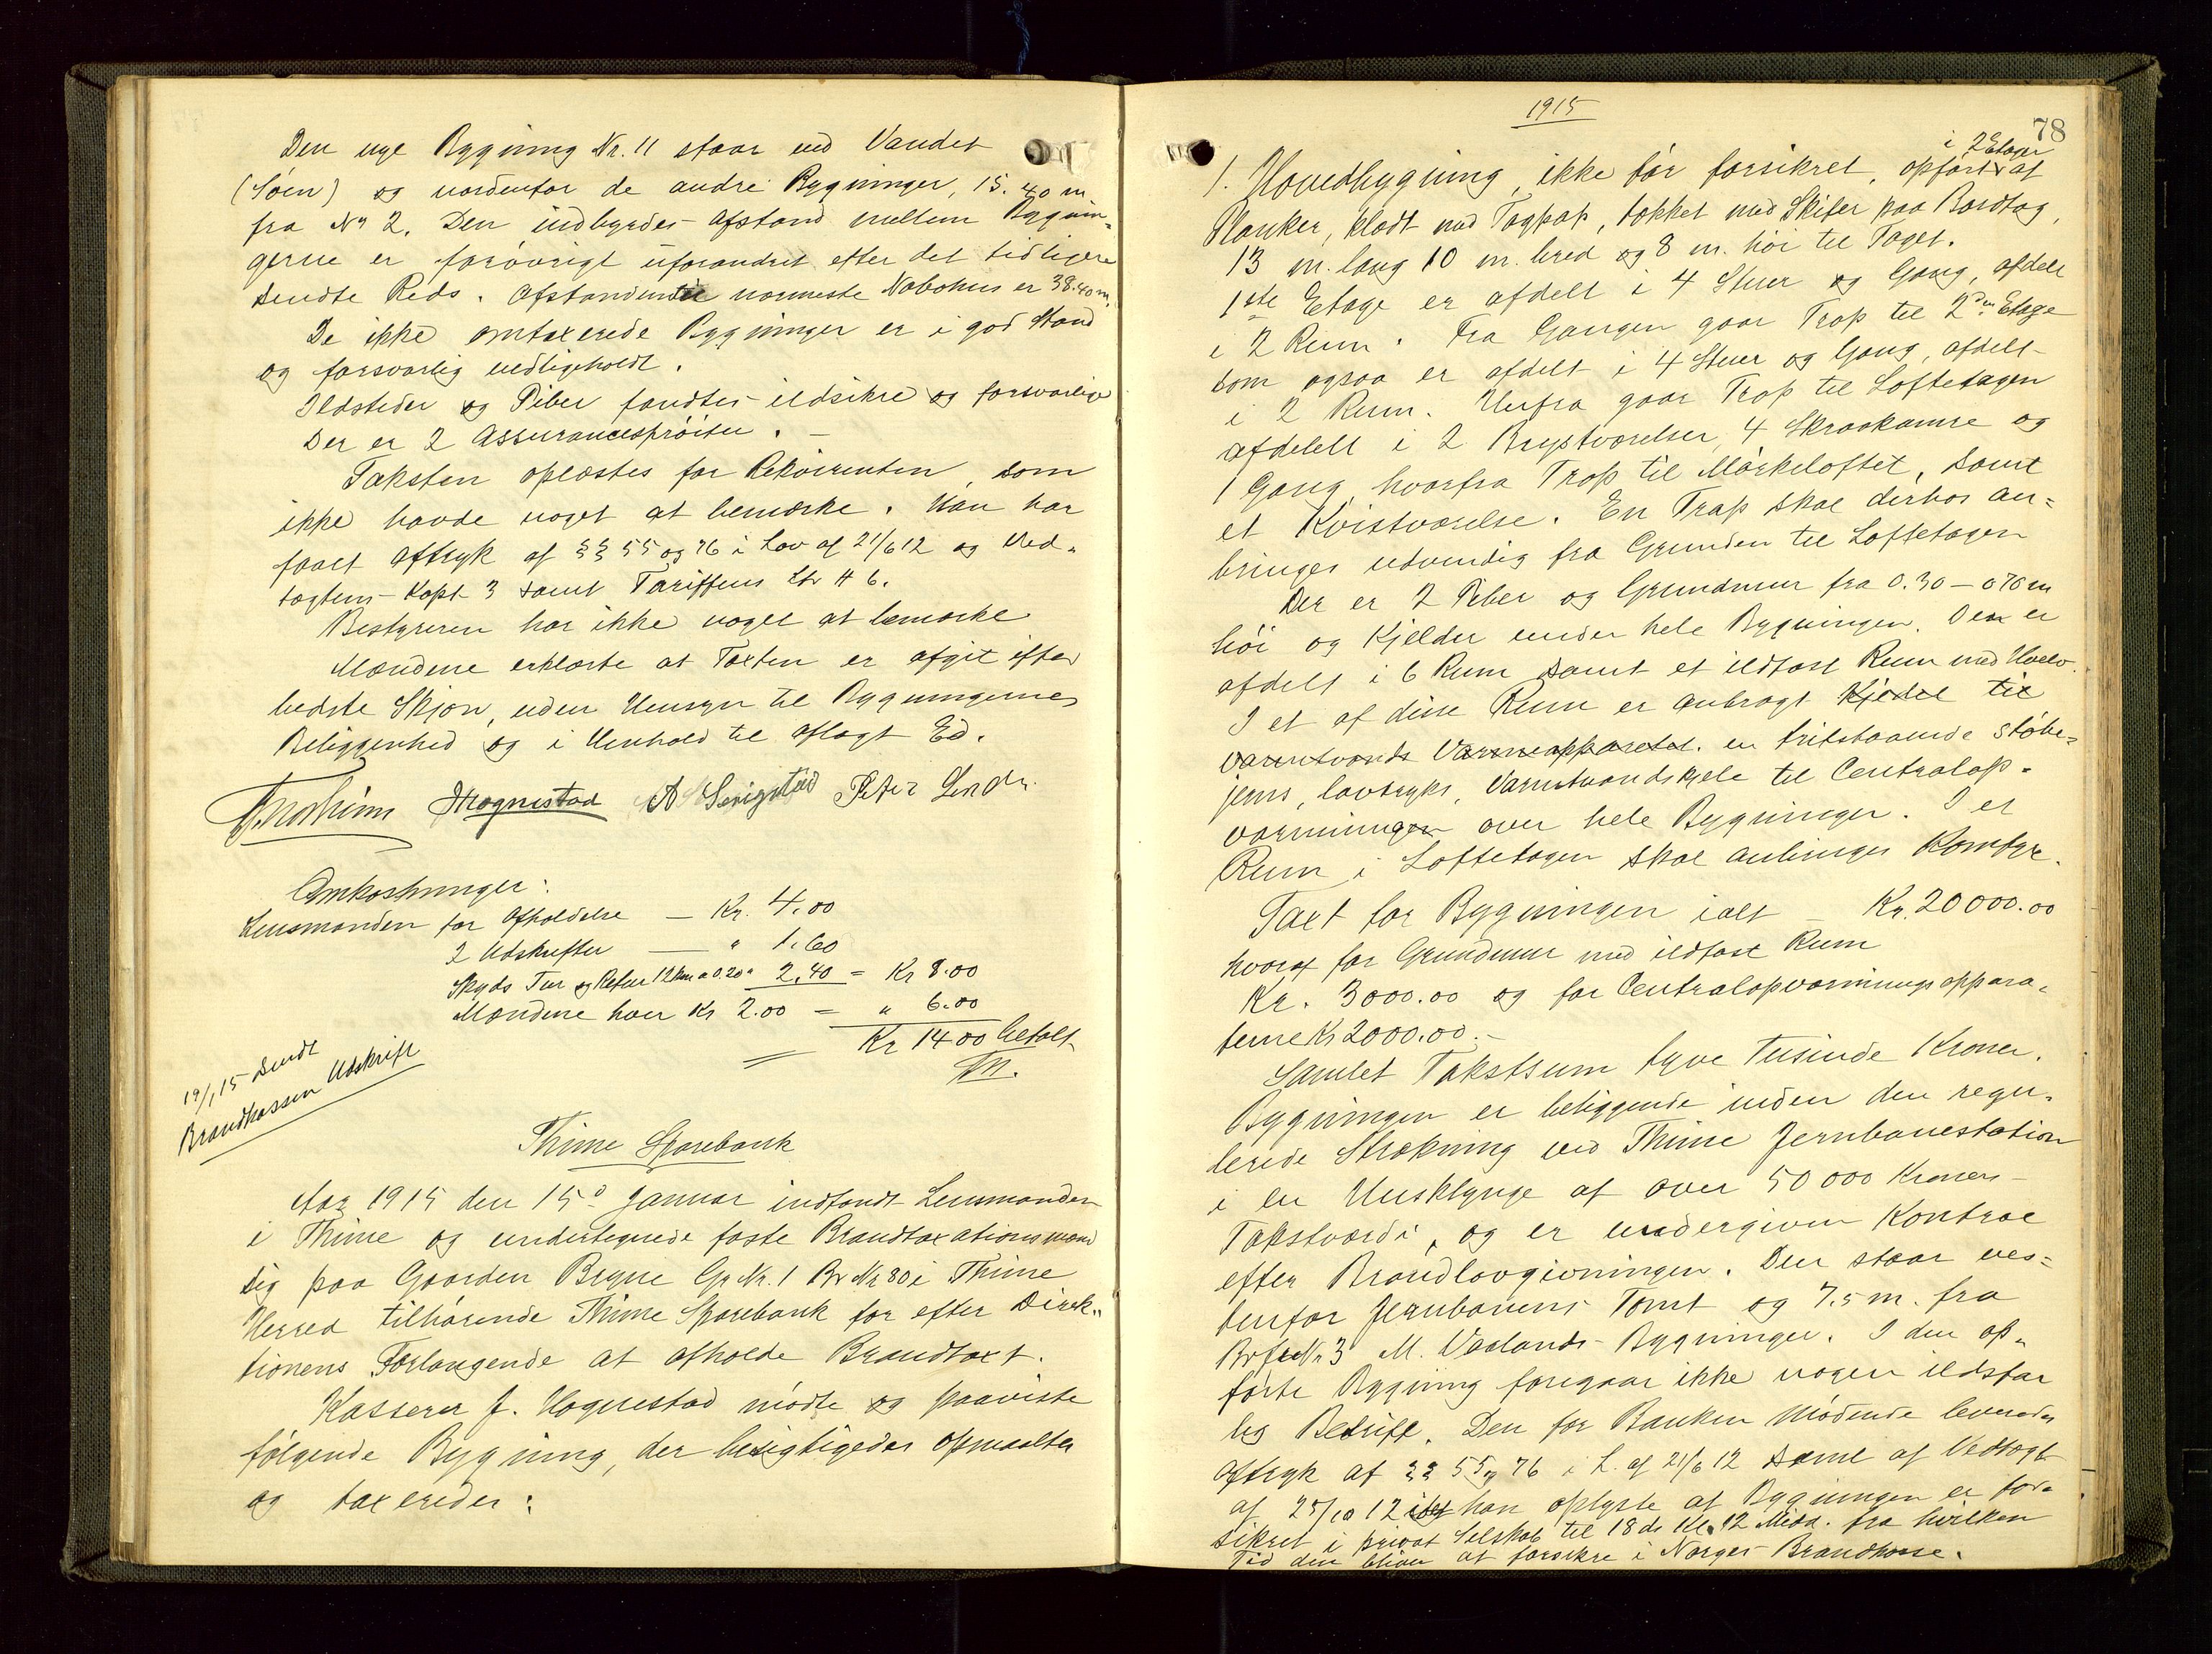 Den nye Bygning Nr. 11 staar ved Vandet
(Söen) og nordenfor de andre Bygninger, 15.40 m.
fra No 2. Den indbyrdes Afstand mellem Bygnin=
gerne er forövrigt uforandret efter det tidligere
sendte Rids. Afstanden til nærmeste Nabohus er 38.40 m.
De ikke omtaxerede Bygninger er i god Stand
og forsvarlig vedligeholdt.
Ildsteder og Piber fandtes ildsikre og forsvarlige
Der er 2 Assurancespröiter. –
Taksten oplæstes for Rekvirenten, som
ikke havde noget at bemærke. Han har
faaet Aftryk af §§ 55 og 76 i Lov af 21/6 12 og Ved=
tægtens Kapt 3 samt Tariffens Litr H 6.
Bestyreren har ikke noget at bemærke
Mændene erklærte at Taxten er afgit efter
bedste Skjøn, uden Hensyn til Bygningernes
Beliggenhed og i Henhold til aflagt Ed.
Hognestad A Serigstad Peter
Omkostninger:
Lensmanden for Afholdelse – Kr. 4.00
2 Udskrifter — " 1.60
Skyds Tur og Retur 12 km a 0.20 " 2.40 = Kr 8.00
Mændene hver Kr 2.00 = " 6.00
Kr 14 00 betalt
19/1 15 sendt
Brandkassen Udskrift
Thime Sparebank
Aar 1915 den 15d Januar indfandt Lensmanden
i Thime og undertegnede faste Brandtaxationsmænd
sig paa Gaarden Bryne Gr Nr. 1 Br Nr 80 i Thime
Herred tilhörende Thime Sparebank for efter Direk=
tionens Forlangende at afholde Brandtaxt.
Kasserer J. Hognestad mödte og paaviste
fölgende Bygning, der besigtigedes opmaaltes
og taxeredes:
1915
78
i 2 Etager
1. Hovedbygning, ikke för forsikret, opfört af
Planker, klædt med Tagpap, tækket med Skifer paa Bordtag,
13 m. lang 10 m. bred og 8 m. höi til Taget.
1ste Etage er afdelt i 4 Stuer og Gang, afdelt
i 2 Rum. Fra Gangen gaar Trap til 2den Etage
som ogsaa er afdelt i 4 Stuer og Gang, afdelt
i 2 Rum. Herfra gaar Trap til Loftetagen
afdelelt i 2 Brystværelser, 4 Skraakamre og
1 Gang, hvorfra Trap til Mörkeloftet, samt
et Kvistværelse. En Trap skal derhos an=
bringes udvendig fra Grunden til Loftetagen
Der er 2 Piber og Grundmur fra 0.30 – 0.70 m
höi og Kjelder under hele Bygningen. Den er
afdelt i 6 Rum samt et ildfast Rum med Hvælv.
I et af disse Rum er anbragt Kjedel til
varmtvands Varmeapparatet. en fritstaaende stöbe=
jerns, lavtryks, Varmtvandskjele til Centralop=
varmningen over hele Bygningen. I et
Rum i Loftetagen skal anbringes Komfyr.
Taxt for Bygningen ialt – Kr. 20 000.00
hvoraf for Grundmur med ildfast Rum
Kr. 3000.00 og for Centralopvarmningsappara=
terne Kr 2000.00. –
Samlet Takstsum tyve Tusinde Kroner.
Bygningen er beliggende inden den regu=
lerede Strækning ved Thime Jernbanestation
i en Husklynge af over 50 000 Kroners
Takstværdi, og er undergiven Kontrol
efter Brandlovgivningen. Den staar ves=
tenfor Jernbanens Tomt og 7.5 m. fra
Nr 3 M. Vaalands Bygninger. I den op=
förte Bygning foregaar ikke nogen ildsfar
lig Bedrift. Den for Banken Mödende leveredes
Aftryk af §§ 55 og 76 i L. af 21/6 12 samt af Vedtægt
af 25/10 12 han oplyste at Bygningen er for=
sikret i privat Selskab til 18 ds Kl. 12 Midd. fra hvilken
Tid den bliver at forsikre i Norges Brandkasse.